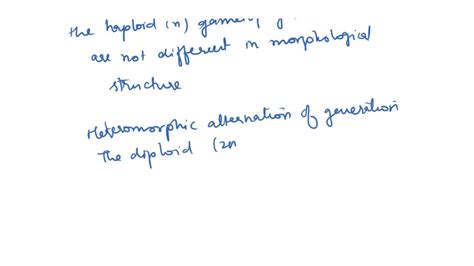 the haploid (n)
are not different in morphological
structure
Heteromorphic alternation of generation
The diploid (2n